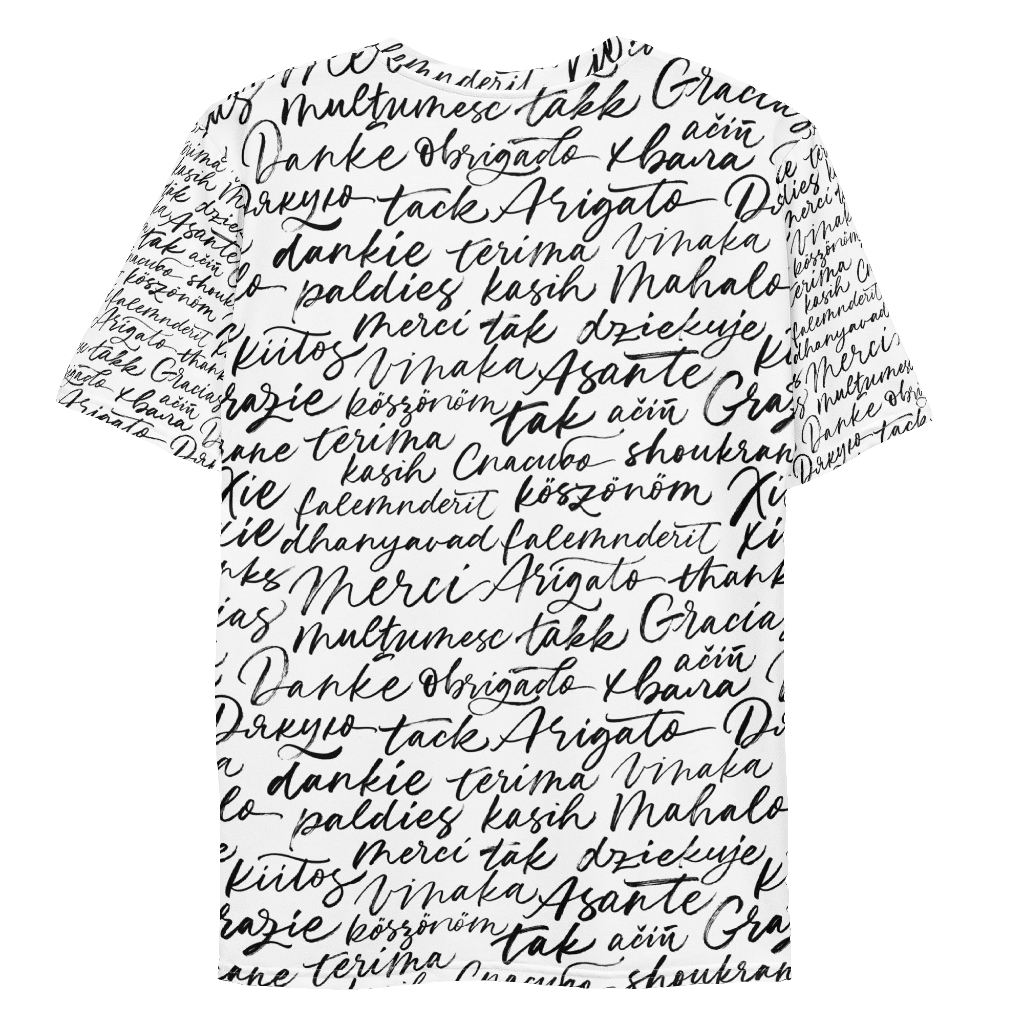 multumesc takk Gracias
ačiū
Danke obrigado хвала
Дякую tack Arigato
dankie terima vinaka
paldies kasih Mahalo
merci tak dziekuje
kiitos vinaka Asante
grazie köszönöm tak ačiū Gra
terima
kasih Спасибо shoukran
Xie falemnderit köszönöm Xi
xie dhanyavad falemnderit xi
Merci Arigato thank
multumesc takk Gracias
ačiū
Danke obrigado хвала
Дякую tack Arigato
dankie terima vinaka
paldies kasih Mahalo
merci tak dziekuje
kiitos vinaka Asante
grazie köszönöm tak ačiū Gra
terima Спасибо shoukran
terima
kasih
tak dziek
Asante
tak ačiū
shouk
köszönöm
falemnderit
Arigato thank
takk Gracias
ačiū
хвала
Arigato
merci
vinaka
köszönöm
terima
kasih
falemnderit
dhanyavad
Merci
multumesc
Danke obri
Дякую tack